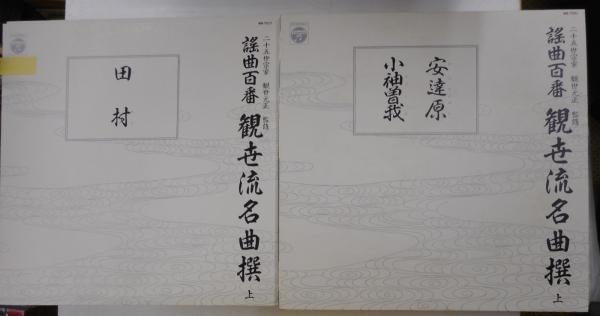 二十五世宗家 観世元正 監修
謡曲百番 観世流名曲撰 上
田村
二十五世宗家 観世元正 監修
謡曲百番 観世流名曲撰 上
安達原
小袖曽我